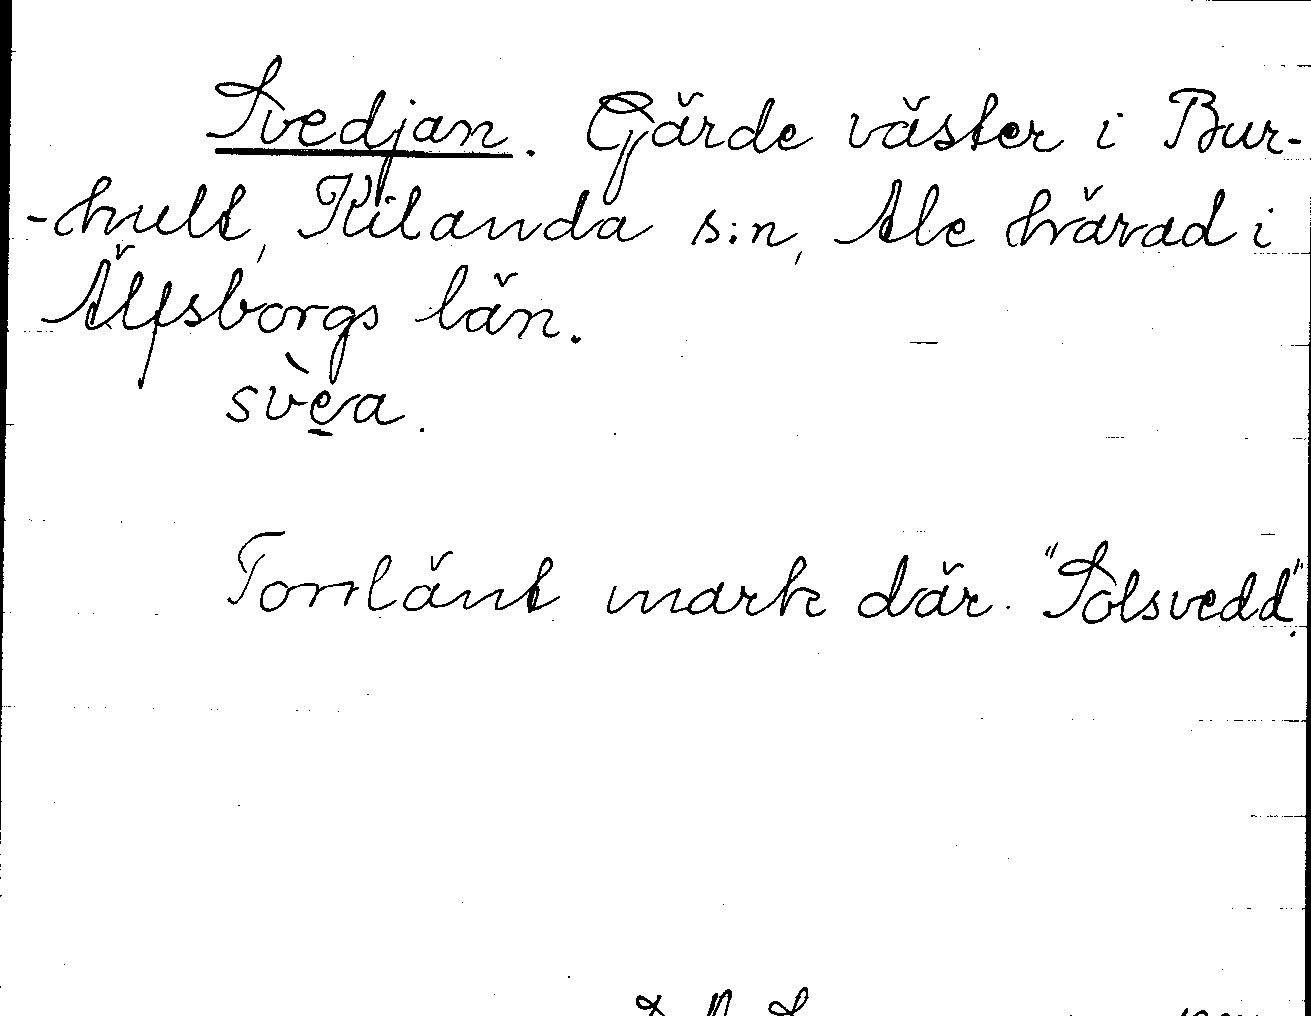 Svedjan. Gärde väster i Bur-
-hult, Kilanda s:n, Ale härad i
Älfsborgs län.
svèa.
Torrlänt mark där. "Solsvedd".